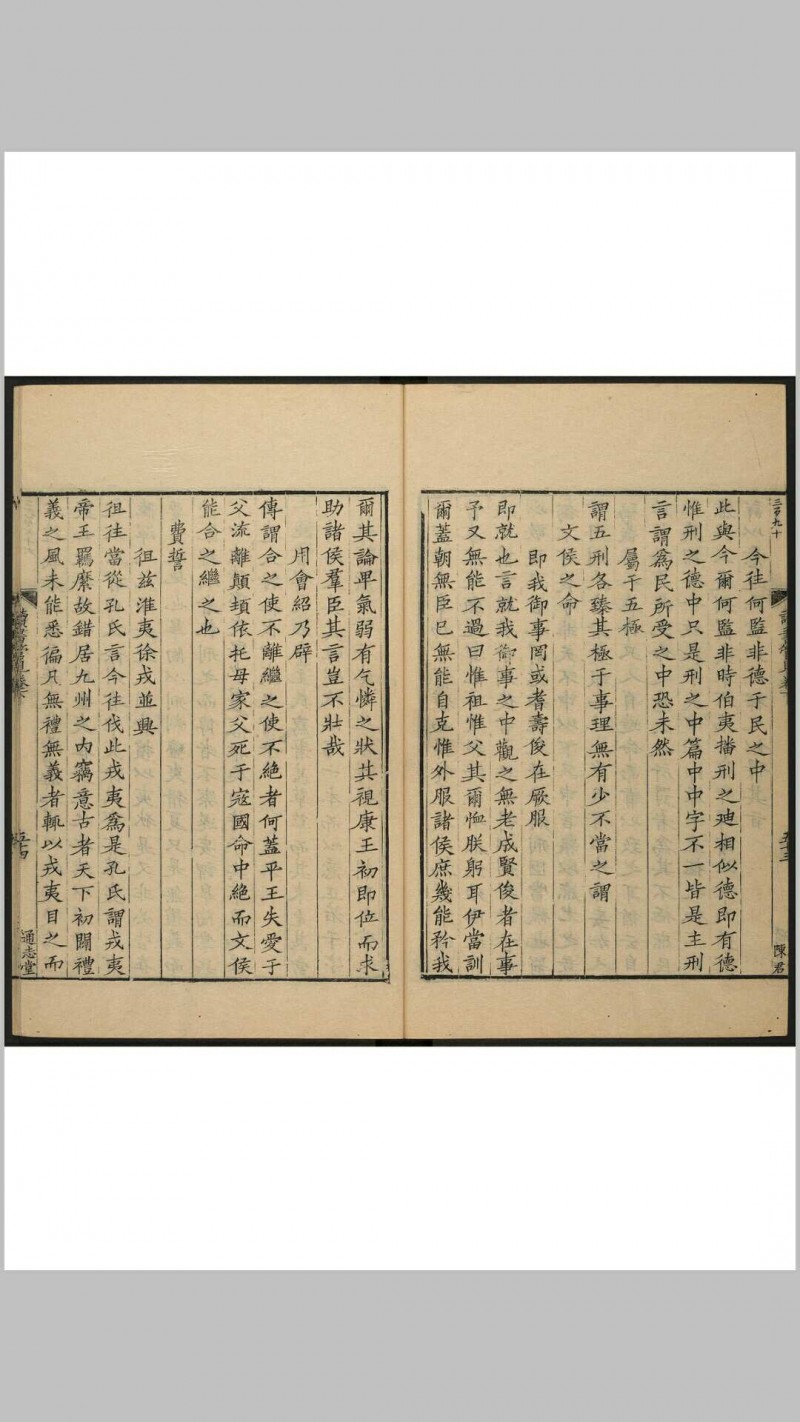 三百九十
今往何監非德于民之中
此與今爾何監非時伯夷播刑之迪相似德即有德
惟刑之德中只是刑之中篇中中字不一皆是主刑
言謂為民所受之中恐未然
屬于五極
謂五刑各臻其極于事理無有少不當之謂
文侯之命
即我御事罔或耆壽俊在厥服
即就也言就我御事之中觀之無老成賢俊者在事
予又無能不過曰惟祖惟父其爾恤朕躬耳伊當訓
爾蓋朝無臣已無能自克惟外服諸侯庶幾能矜我
五十三
陳君
爾其論卑氣弱有乞憐之狀其視康王初即位而求
助諸侯羣臣其言豈不壯哉
用會紹乃辟
傳謂合之使不離繼之使不絕者何蓋平王失愛子
父流離顛頊依托母家父死于寇國命中絕而文侯
能合之繼之也
費誓
徂兹淮夷徐戎並興
徂往當從孔氏言今往伐此戎夷為是孔氏謂戎夷
帝王羈縻故錯居九州之內竊意古者天下初闢禮
義之風未能悉徧凡無禮無義者輒以戎夷目之而
五十四
通志堂